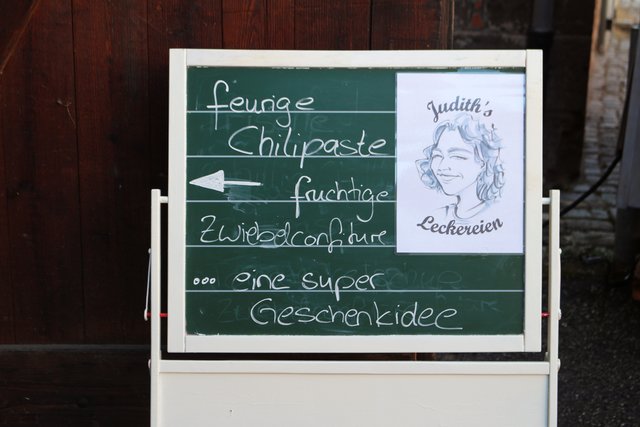 feurige
Chilipaste
fruchtige
Zwiebelconfiture
... eine super
Geschenkidee
Judith's
Leckereien